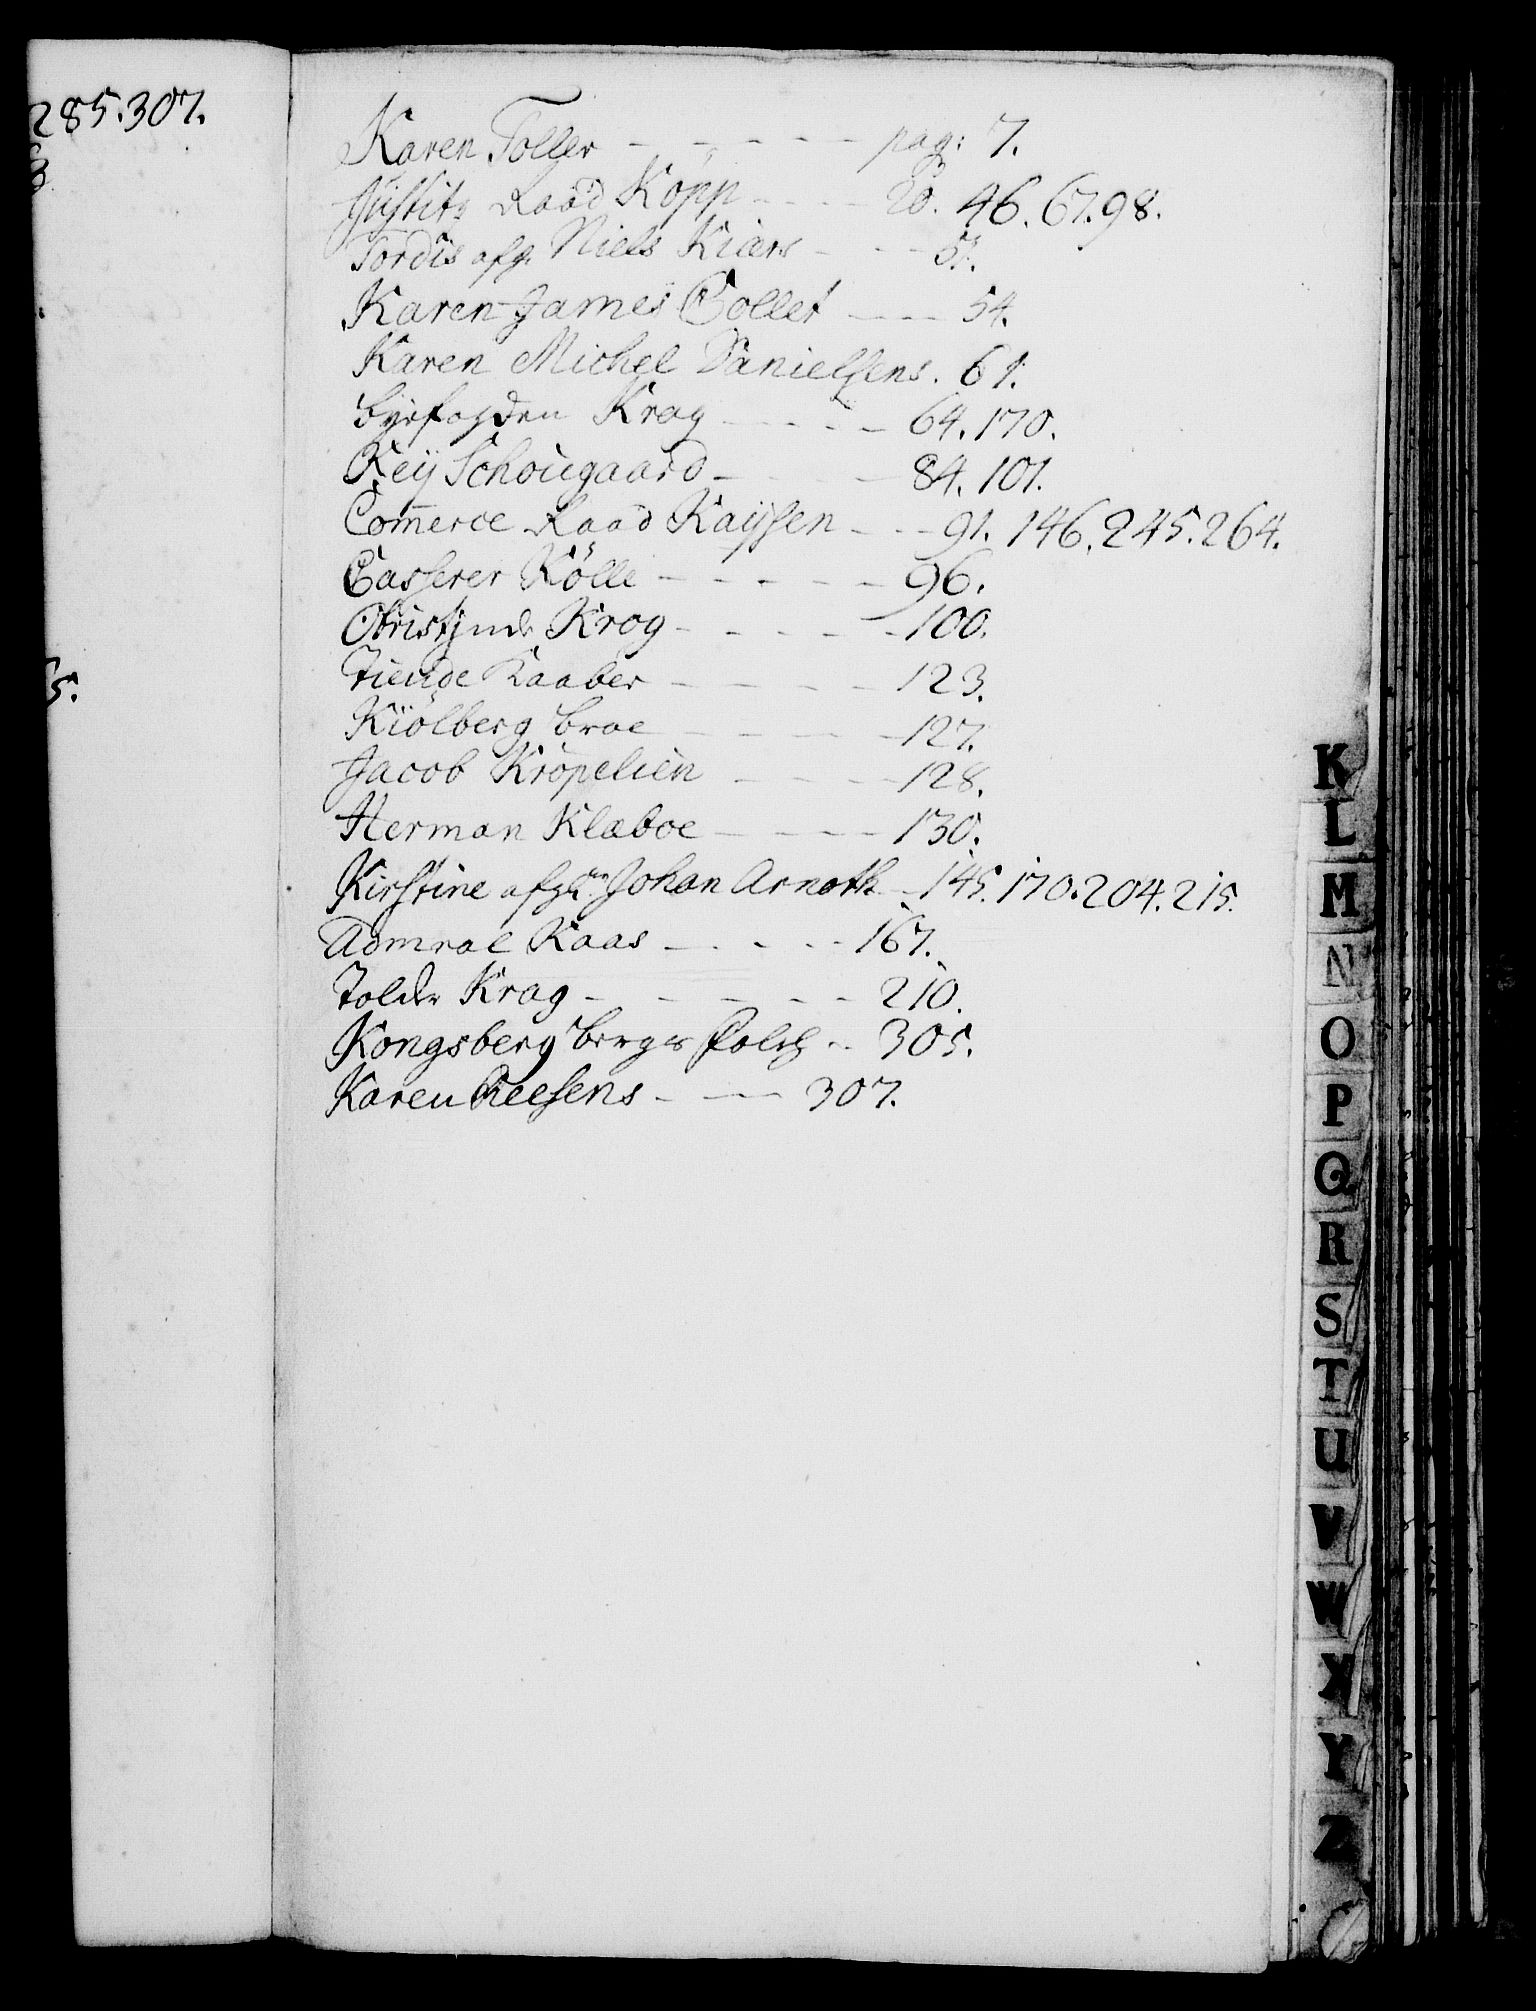 285.307.
5.
Karen Toller - - - - - pag: 7.
Justitz Raad Kopp - - - - 20. 46. 67. 98.
Tordis afg. Niels Kiærs - - - 51.
Karen James Collet - - - 54.
Karen Michel Danielsens. 61.
Byefogden Krag - - - - 64. 170.
Key Schougaard - - - 84. 101.
Com̄erce Raad Kaÿsen - - - 91. 146. 245. 264.
Casserer Kölle - - - - - 96.
Obristinde Krog - - - - - 100.
Tiende Kaaber - - - - 123.
Kiölberg broe - - - - 127.
Jacob Kröpelien - - - - 128.
Herman Klæboe - - - - 130.
Kirstine afg. Johan Arnoth - 145. 170. 204. 215.
Admral Kaas - - - - 167.
Tolder Krag - - - - - 210.
Kongsberg berg - - 305.
Karen Reesens - - - 307.
K
L
M
N
O
P
Q
R
S
T
U
V
W
X
Y
Z